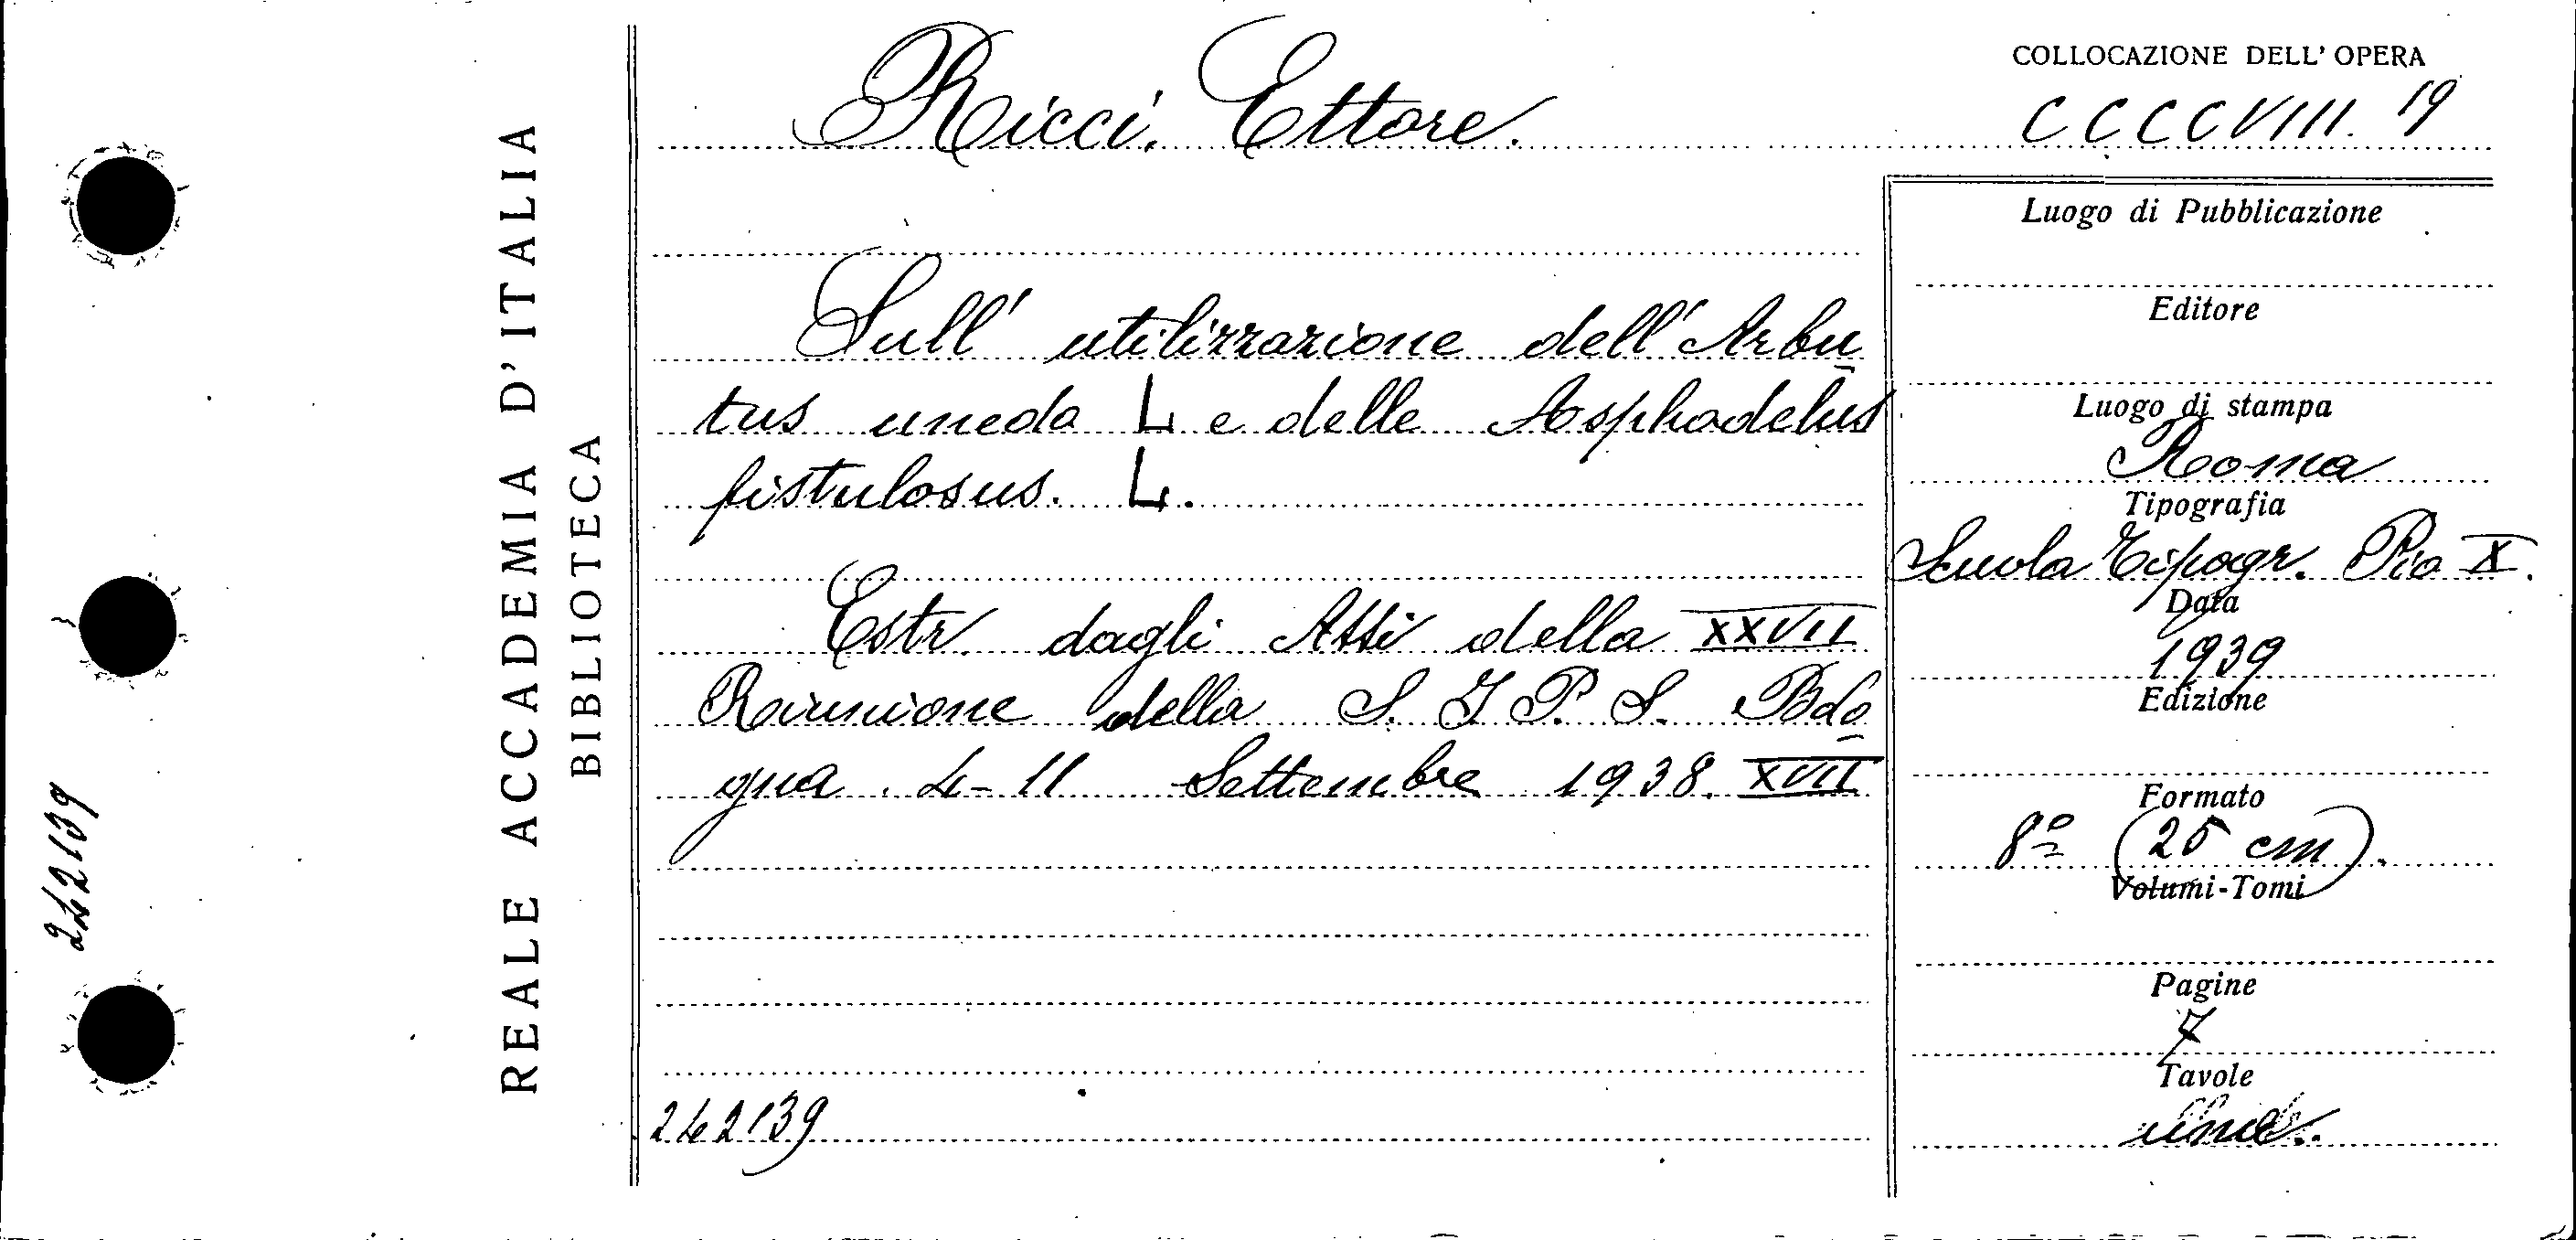 COLLOCAZIONE DELL' OPERA
Ricci. Ettore.
CCCCVIII. 19
REALE ACCADEMIA D'ITALIA
BIBLIOTECA
242139
Sull' utilizzazione dell'Arbu
tus uneda L e delle Asphadelus
fistulosus. L.
Estr. dagli Atti della XXVII
Raiunione della S. I. P. S. Bolo
gna. 4-11 Settembre 1938. XVII
242139
Luogo di Pubblicazione
Editore
Luogo di stampa
Roma
Tipografia
Scuola Tipogr. Pio X.
Data
1939
Edizione
Formato
8º (25 cm).
Volumi-Tomi
Pagine
7
Tavole